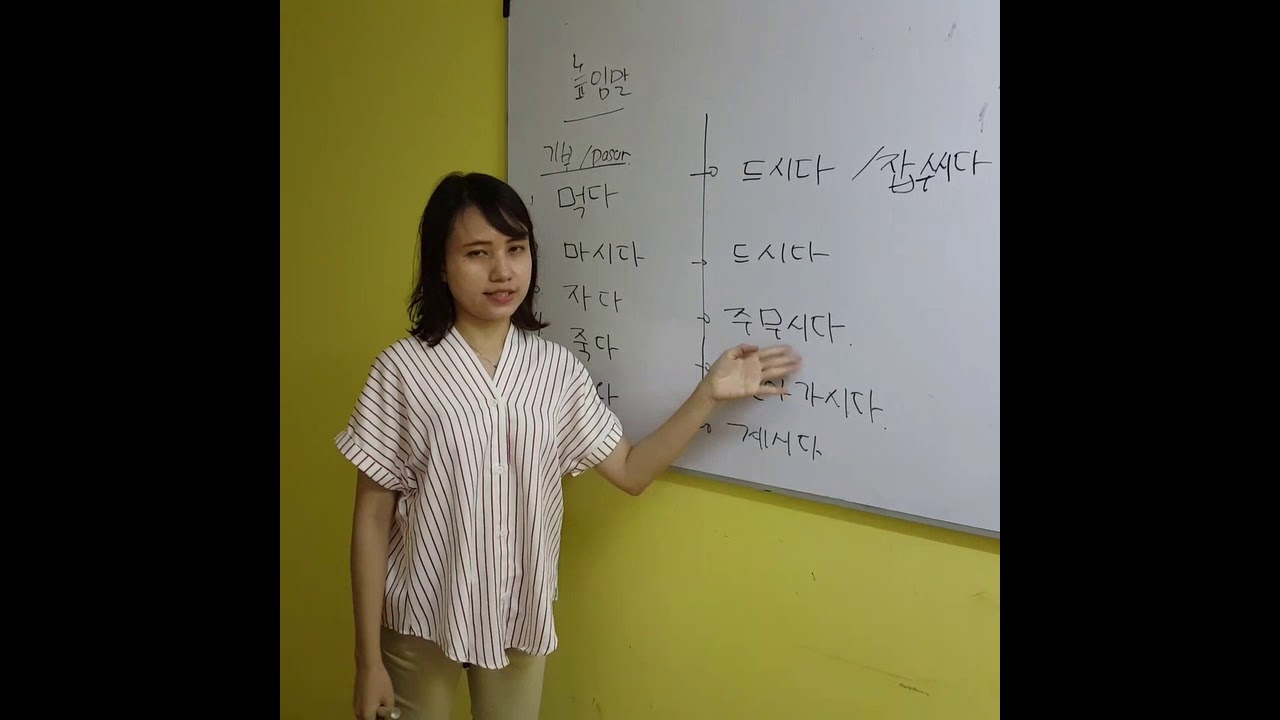 높임말
기본/Dasar
먹다 드시다 /잡수시다
마시다 드시다
자다 주무시다.
죽다 가시다.
계시다.